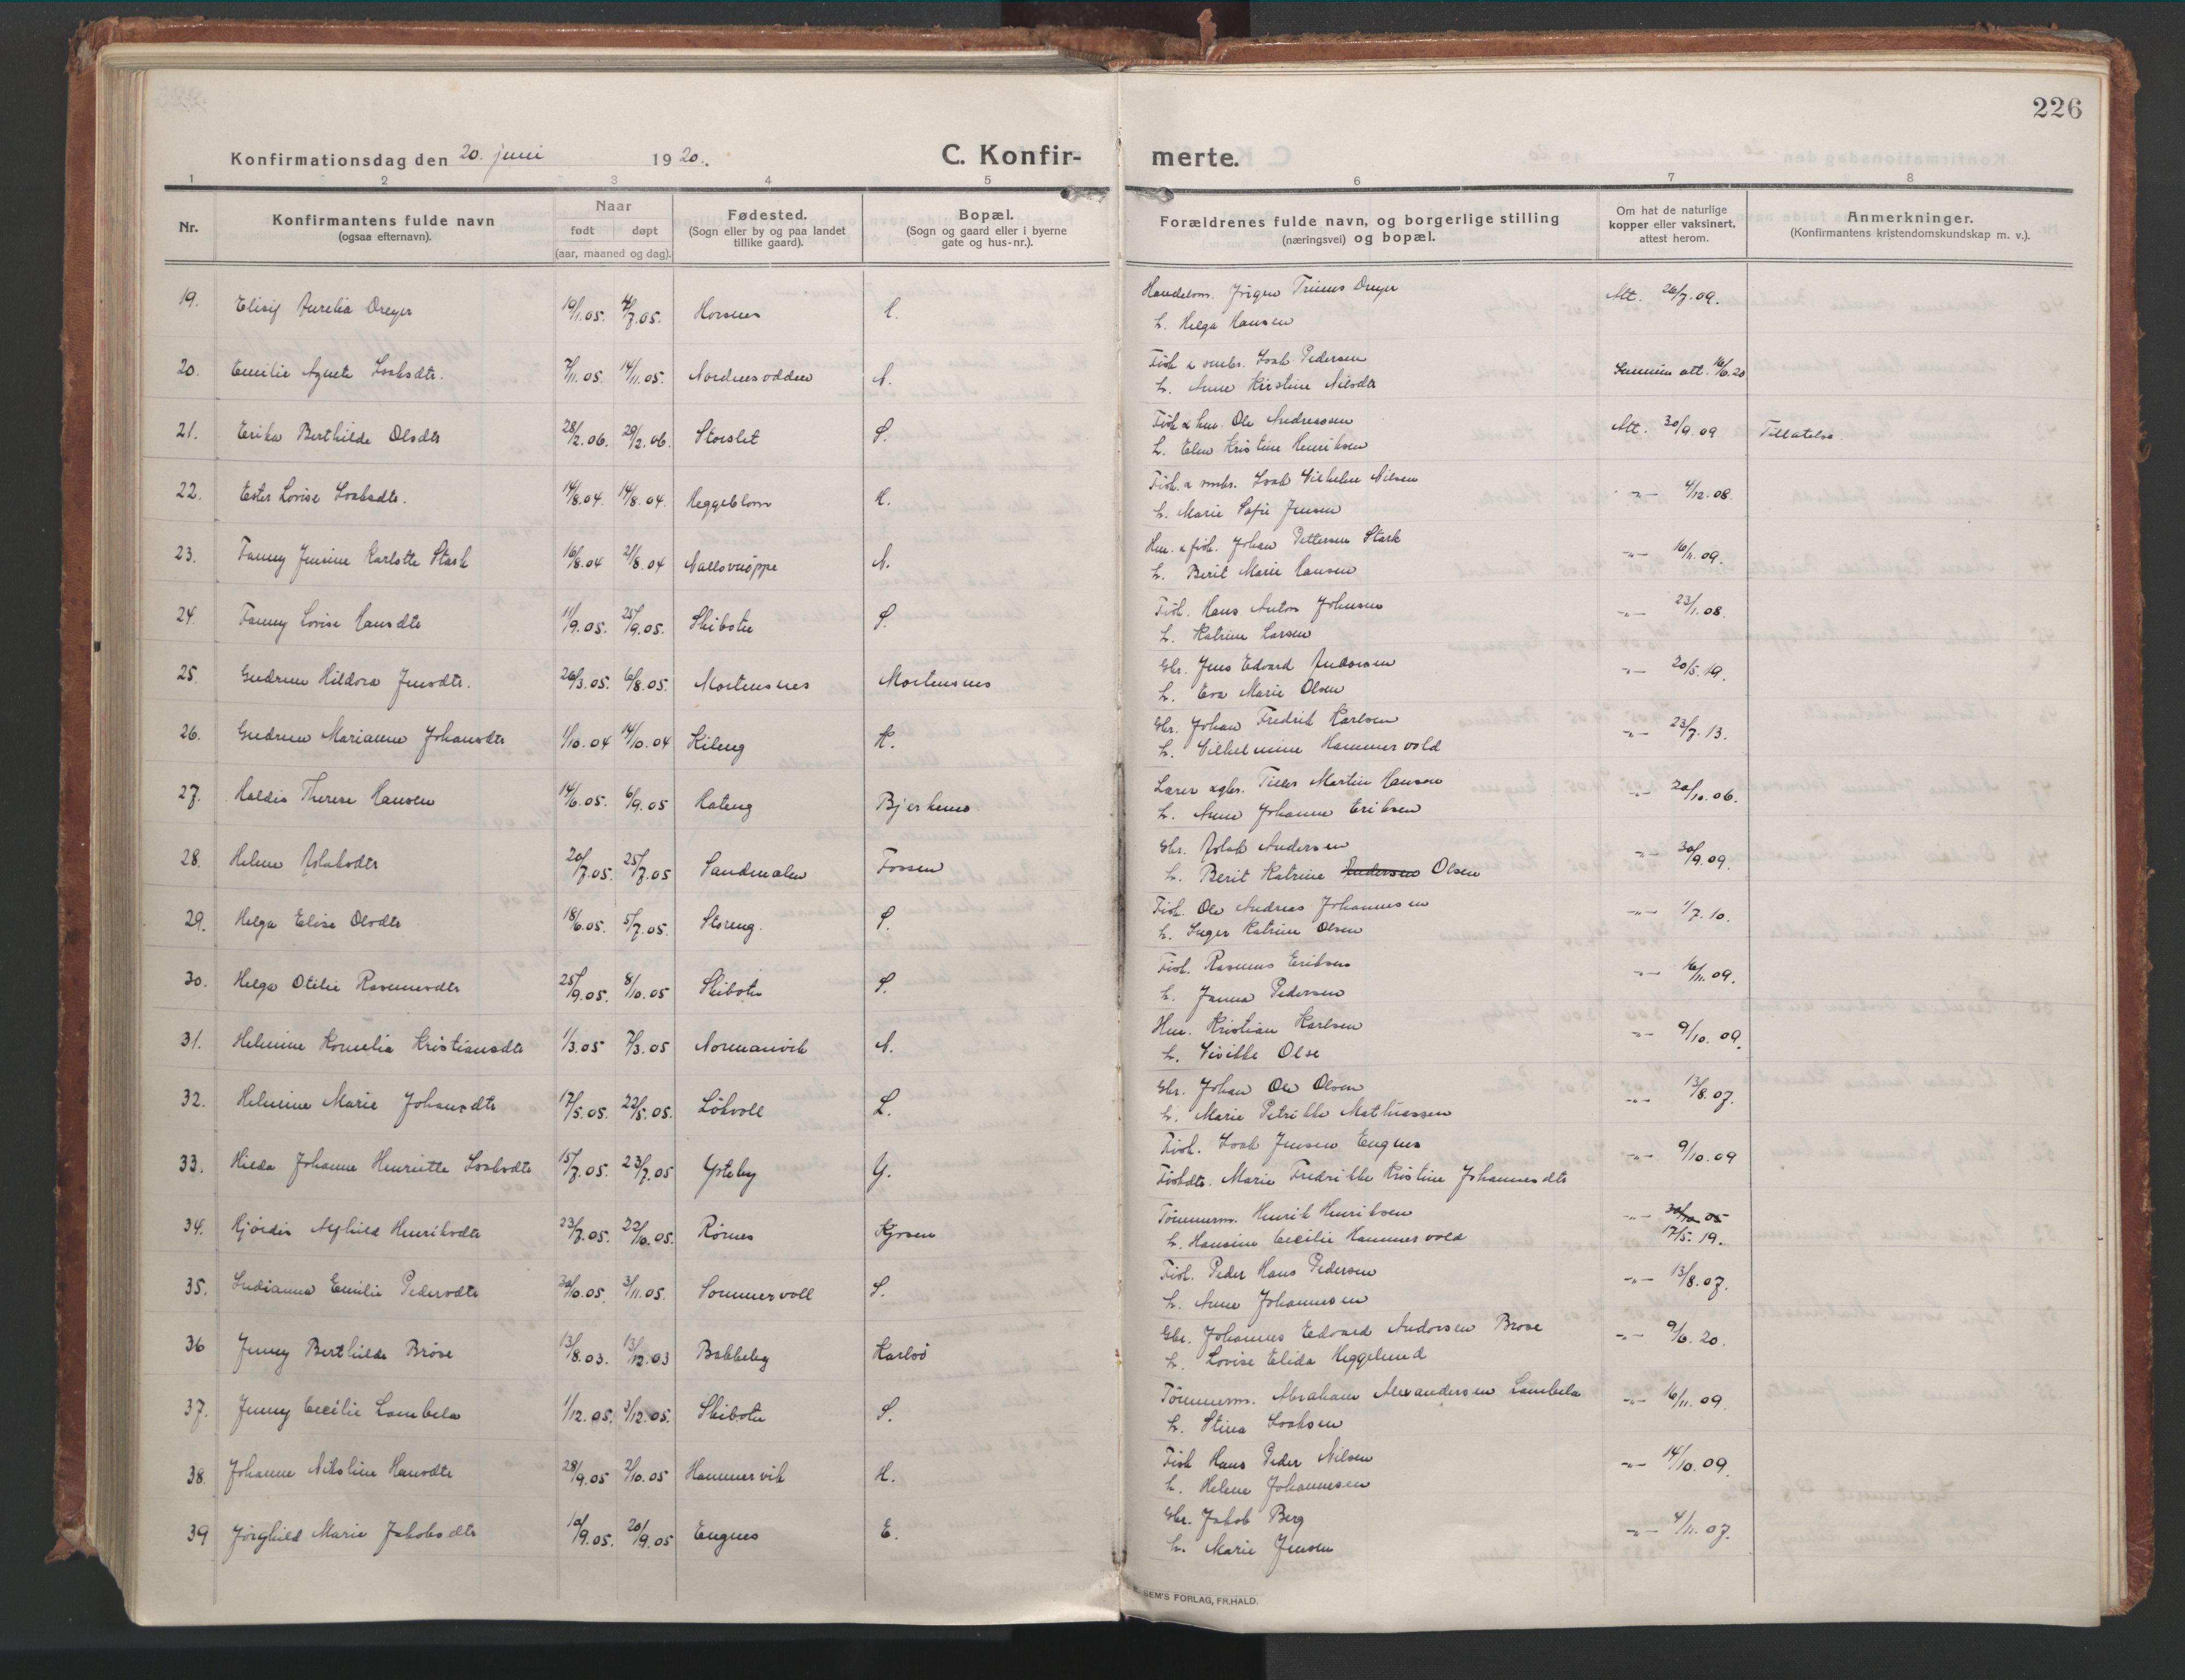 226
Konfirmationsdag den 20. juni 1920.
C. Konfir-
merte.
1 2 3 4 5 6 7 8
Nr.
Konfirmantens fulde navn
(ogsaa efternavn).
Naar
født døpt
(aar, maaned og dag).
Fødested.
(Sogn eller by og paa landet
tillike gaard).
Bopæl.
(Sogn og gaard eller i byerne
gate og hus-nr.).
Forældrenes fulde navn, og borgerlige stilling
(næringsvei) og bopæl.
Om hat de naturlige
kopper eller vaksinert,
attest herom.
Anmerkninger.
(Konfirmantens kristendomskundskap m. v.).
19. Elisif Aurelia Dreyer 19/1.05. 4/7.05. Horsnes H. Handelsm. Jörgen Dreyer Att. 26/7.09.
h. Helga Hansen
20. Emilie Agnete Isaksdtr. 7/11.05. 14/11.05. Nordnesodden N. Fisk. & smbr. Isak Pedersen att. 16/6.20
h. Anne Kirstine Nilsdtr
21. Erika Berthilde Olsdtr 28/2.06. 29/2.06. Storslet S. Fisk & hm. Ole Andreassen Att. 30/9.09 Tillatelse.
h. Elen Kristine Henriksen
22. Ester Lovise Isaksdtr. 14/8.04. 14/8.04. Heggeblom H. Fisk. & smbr. Isak Vilhelm Nilsen -"- 4/12.08.
h. Marie Sofie Jensen
23. Fanny Jensine Karlotte Stark 16/8.04 21/8.04 N. Hm. & fisk. Johan Pettersen Stark -"- 16/11.09.
h. Berit Marie Hansen
24. Fanny Lovise Hansdtr 11/9.05. 25/9.05. Skibotn S. Fisk. Hans Anton Johnsen -"- 23/1.08.
h. Katrine Larsen
25. Gudrun Hildora Jensdtr. 26/3.05. 6/8.05. Mortensnes Mortensnes Gbr. Jens Edvard Andersen -"- 20/5.19.
h. Eva Marie Olsen
26. Gudrun Marianne Johansdtr 1/10.04 14/10.04 Kileng K. Gbr. Johan Fredrik Karlsen -"- 23/7.13.
h. Vilhelmine Hammervold
27. Haldis Therese Hansen 14/6.05. 6/9.05 Hateng Bjerknes. Lærer & gbr. Martin Hansen -"- 20/10.06.
h. Anne Johanne Eriksen
28. Helene Aslaksdtr 20/7.05. 25/7.05 Sandmalen Fossen Gbr. Aslak Andersen -"- 30/9.09.
h. Berit Katrine Andersen Olsen
29. Helga Elise Olsdtr 18/6.05. 5/7.05. Storeng. S. Fisk. Ole Andreas Johannesen -"- 1/7.10.
h. Inger Katrine Olsen
30. Helga Otilie Rasmusdtr 25/9.05. 8/10.05 Skibotn S. Fisk. Rasmus Eriksen -"- 16/11.09.
h. Janna Pedersen
31. Helmine Kornelia Kristiansdtr 1/3.05 7/3.05 Normanvik N. Hm. Kristian Karlsen -"- 9/10.09.
h. Sivikke Olse
32. Helmine Marie Johansdtr 17/5.05. 22/5.05. Lökvoll L. Gbr. Johan Ole Olsen -"- 13/8.07.
h. Marie Petrikke Mathiassen
33. Hilda Johanne Henriette Isaksdtr 15/7.05. 23/7.05 Ysteby Y. Fisk. Isak Jensen Engnes -"- 9/10.09
Fiskdtr. Marie Fredrikke Kristine Johannesdtr
34. Hjördis Alfhild Henriksdtr 23/7.05. 22/10.05. Rörnes Kjosen Tömmerm. Henrik Henriksen -"- 30/10 05
h. Hansine Cecilie Hammervold 17/5.19.
35. Indianna Emilie Pedersdtr 30/6.05. 3/11.05. Sommervoll S. Fisk. Peder Hans Pedersen -"- 13/8.07.
h. Anne Johannesen
36 Jenny Berthilde Bröse 13/8.03. 13/12.03 Bakkeby Karlsö Gbr. Johannes Edvard Andersen Brose -"- 9/6.20.
h. Lovise Elida Heggelund
37. Jenny Cecilie Lambela 1/12.05. 3/12.05. Skibotn S. Tömmerm. Abraham Alexandersen Lambela -"- 16/11.09.
h. Stina Isaksen
38. Johanne Nikoline Hansdtr 28/9.05 2/10.05 Hammervik H. Fisk Hans Peder Nilsen -"- 14/10.09.
h. Helene Johannesen
39 Jörghild Marie Jakobsdtr 10/9.05. 20/9.05 Engnes E. Gbr. Jakob Berg -"- 4/11.07.
h. Marie Jensen
SEM'S FORLAG, FR.HALD.